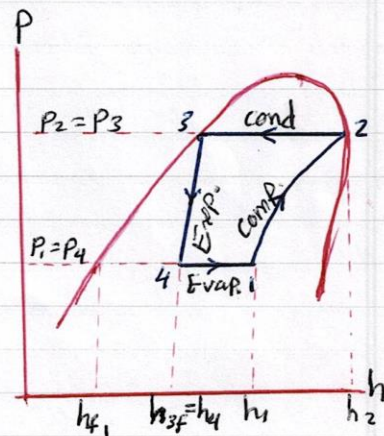 P
P₂ = P₃
3
cond
2
Exp.
Comp.
P₁ = P₄
4
Evap.
1
h
hf₁
h3f = h4
h1
h2